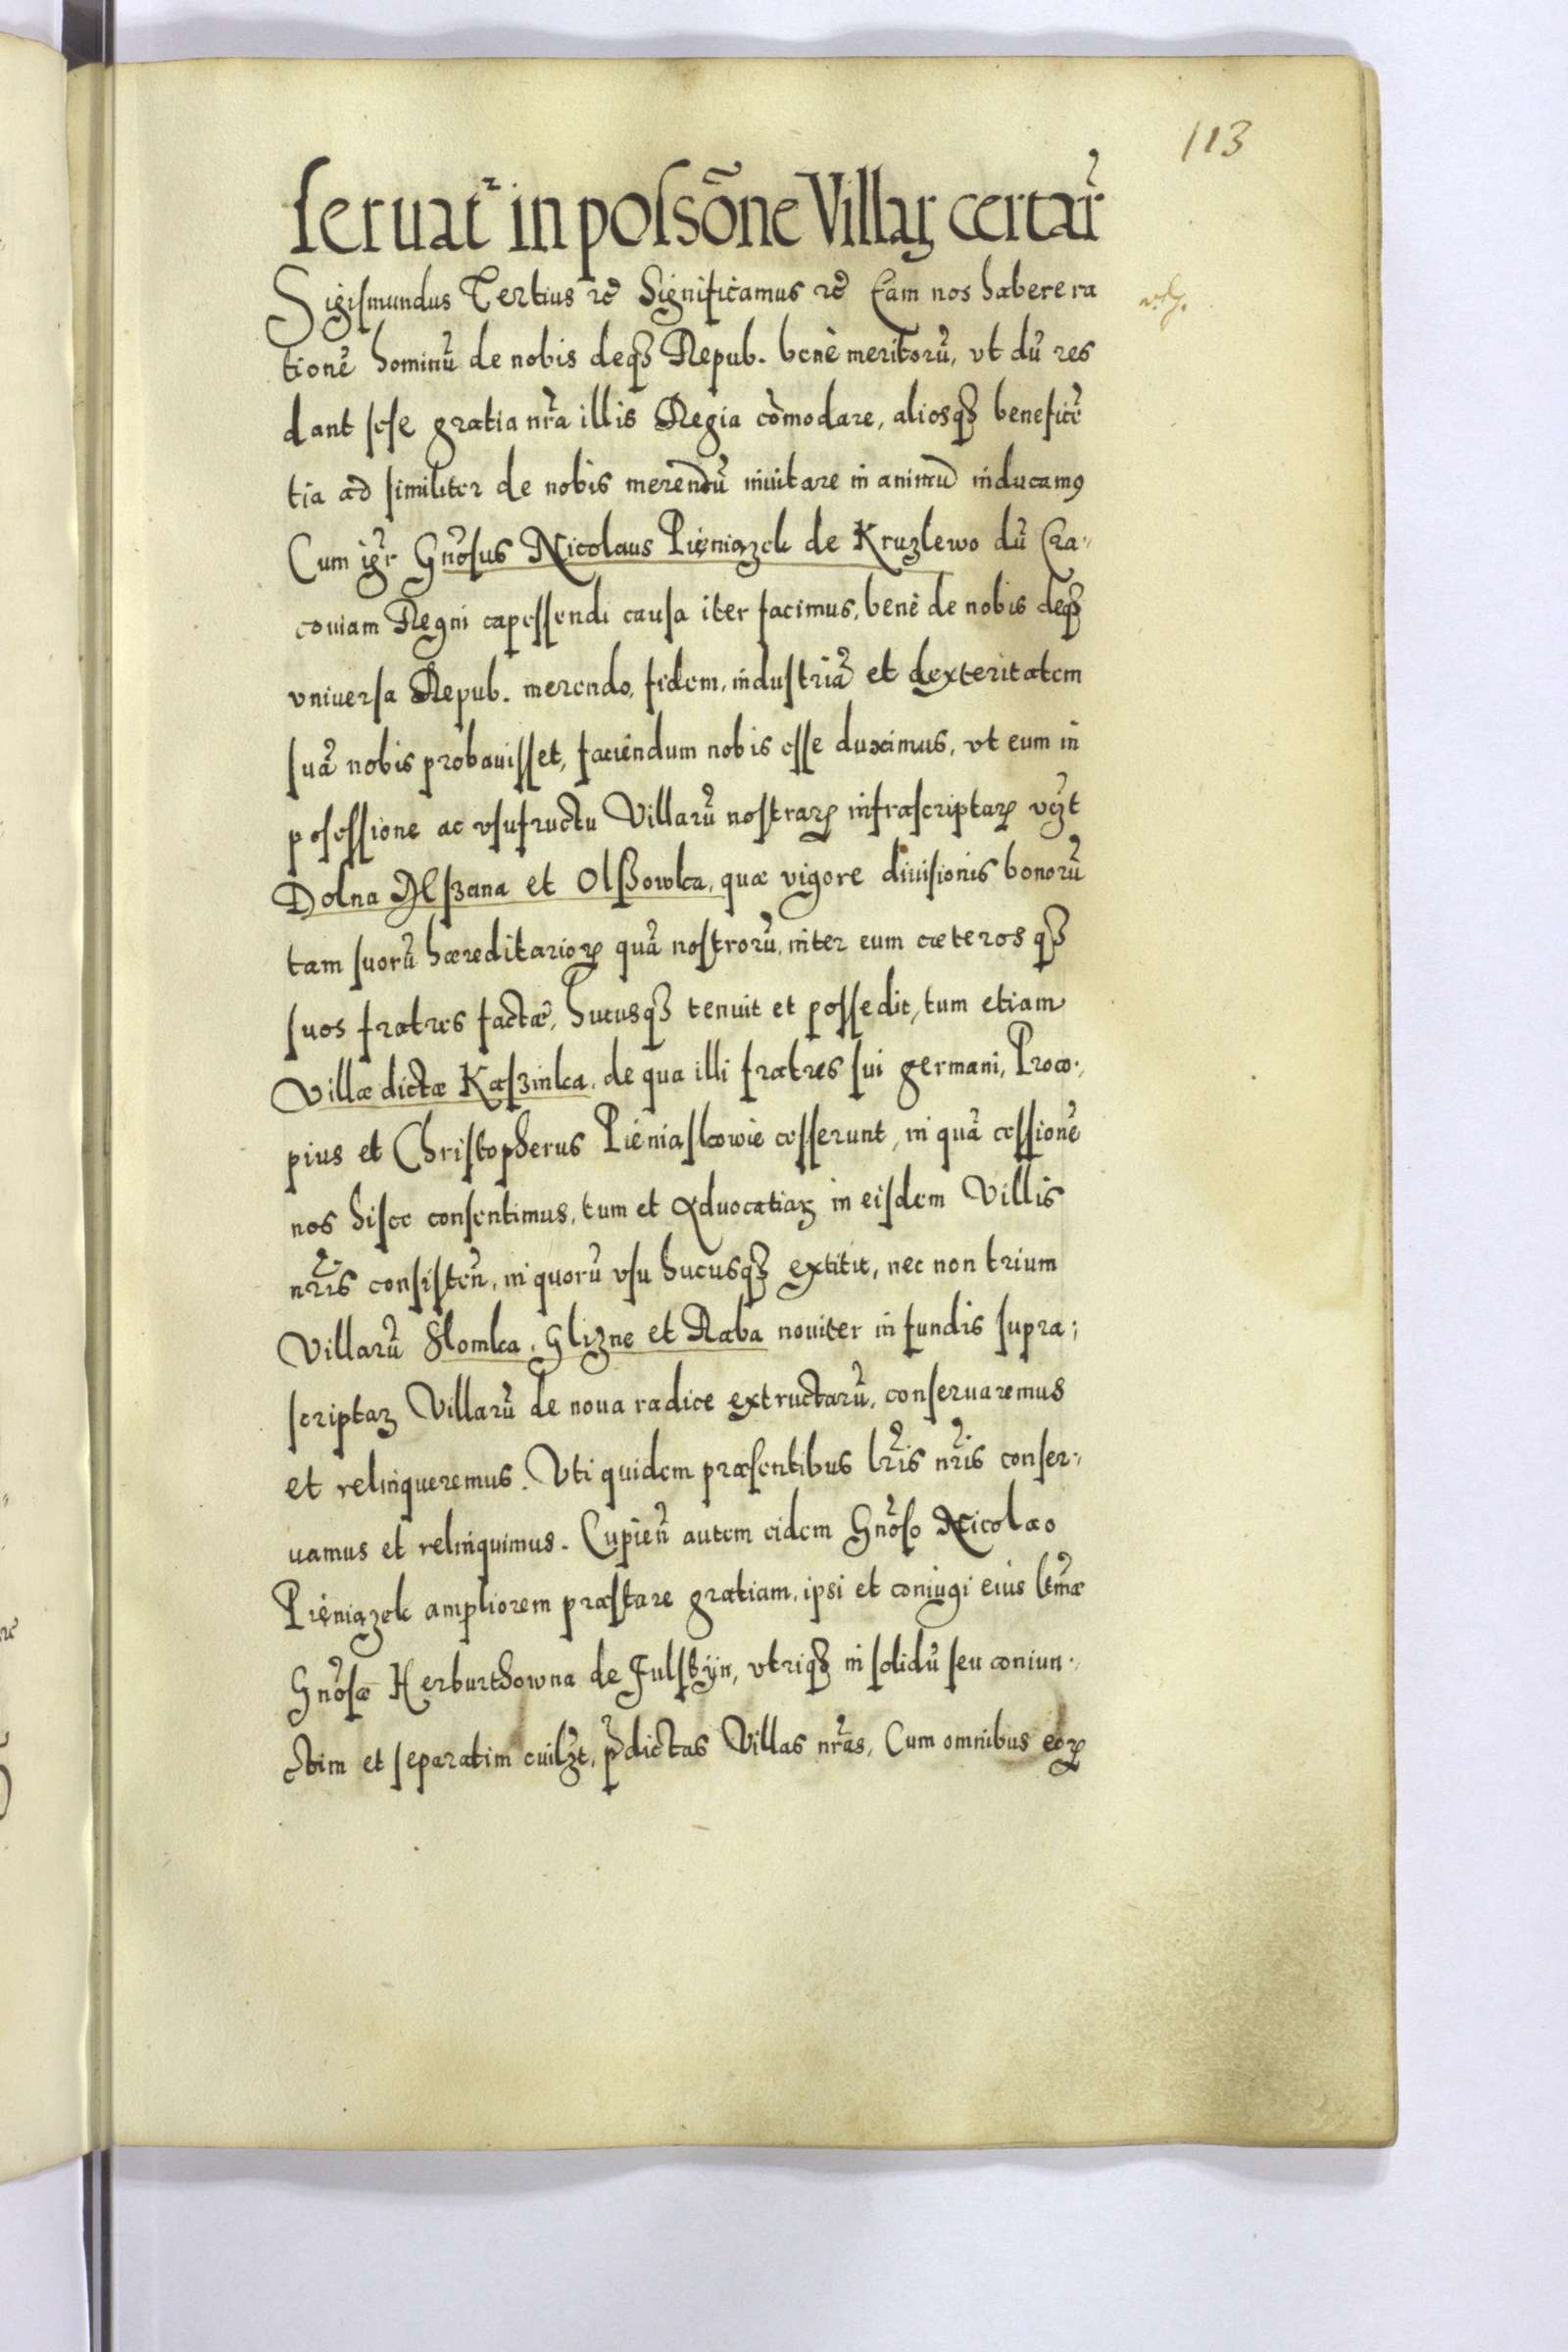 113
seruat᷑ in possōne Villaꝝ certar̃
Sigismundus Tertius ꝛc̃ Significamus ꝛc̃ Eam nos habere ra
tionẽ hominũ de nobis deqꝫ Repub. benè meritorũ, vt dũ res
dant sese gratia nr̃a illis Regia cõmodare, aliosqꝫ beneficẽ
tia ad similiter de nobis merendũ inuitare in animũ inducamꝰ
Cum igr̃ Gnõsus Nicolaus Pięniązek de Kruzlewo dũ Cra-
couiam Regni capessendi causa iter facimus, benè de nobis deqꝫ
vniuersa Repub. merendo, fidem, industriã et dexteritatem
suã nobis probauisset, faciendum nobis esse duximus, vt eum in
posessione ac vsufructu Villarũ nostraꝝ infrascriptaꝝ vꝫt
Dolna Mszana et Olßowka, quæ vigore diuisionis bonorũ
tam suorũ hæreditarioꝝ quã nostrorũ, inter eum cæteros qꝫ
suos fratres factæ, hucusqꝫ tenuit et possedit, tum etiam
Villæ dictæ Kaszinka, de qua illi fratres sui germani, Proco-
pius et Christopherus Pieniaskowie cesserunt, in quã cessionẽ
nos hisce consentimus, tum et Aduocatiaꝝ in eisdem Villis
nr̃is consisteñ, in quorũ vsu hucusqꝫ extitit, nec non trium
Villarũ Slomka, Glizne et Raba nouiter in fundis supra-
scriptaꝝ Villarũ de noua radice extructarũ, conseruaremus
et relinqueremus. Vti quidem præsentibus lr̃is nr̃is conser-
uamus et relinquimus. Cupieñ autem eidem Gnõso Nicolao
Pięniązek ampliorem præstare gratiam, ipsi et coniugi eius ltmæ̃
Gnõsæ Herburthowna de Fulstÿn, vtriqꝫ in solidũ seu coniun-
ctim et separatim cuilꝫt, p̃dictas Villas nr̃as, Cum omnibus eoꝝ